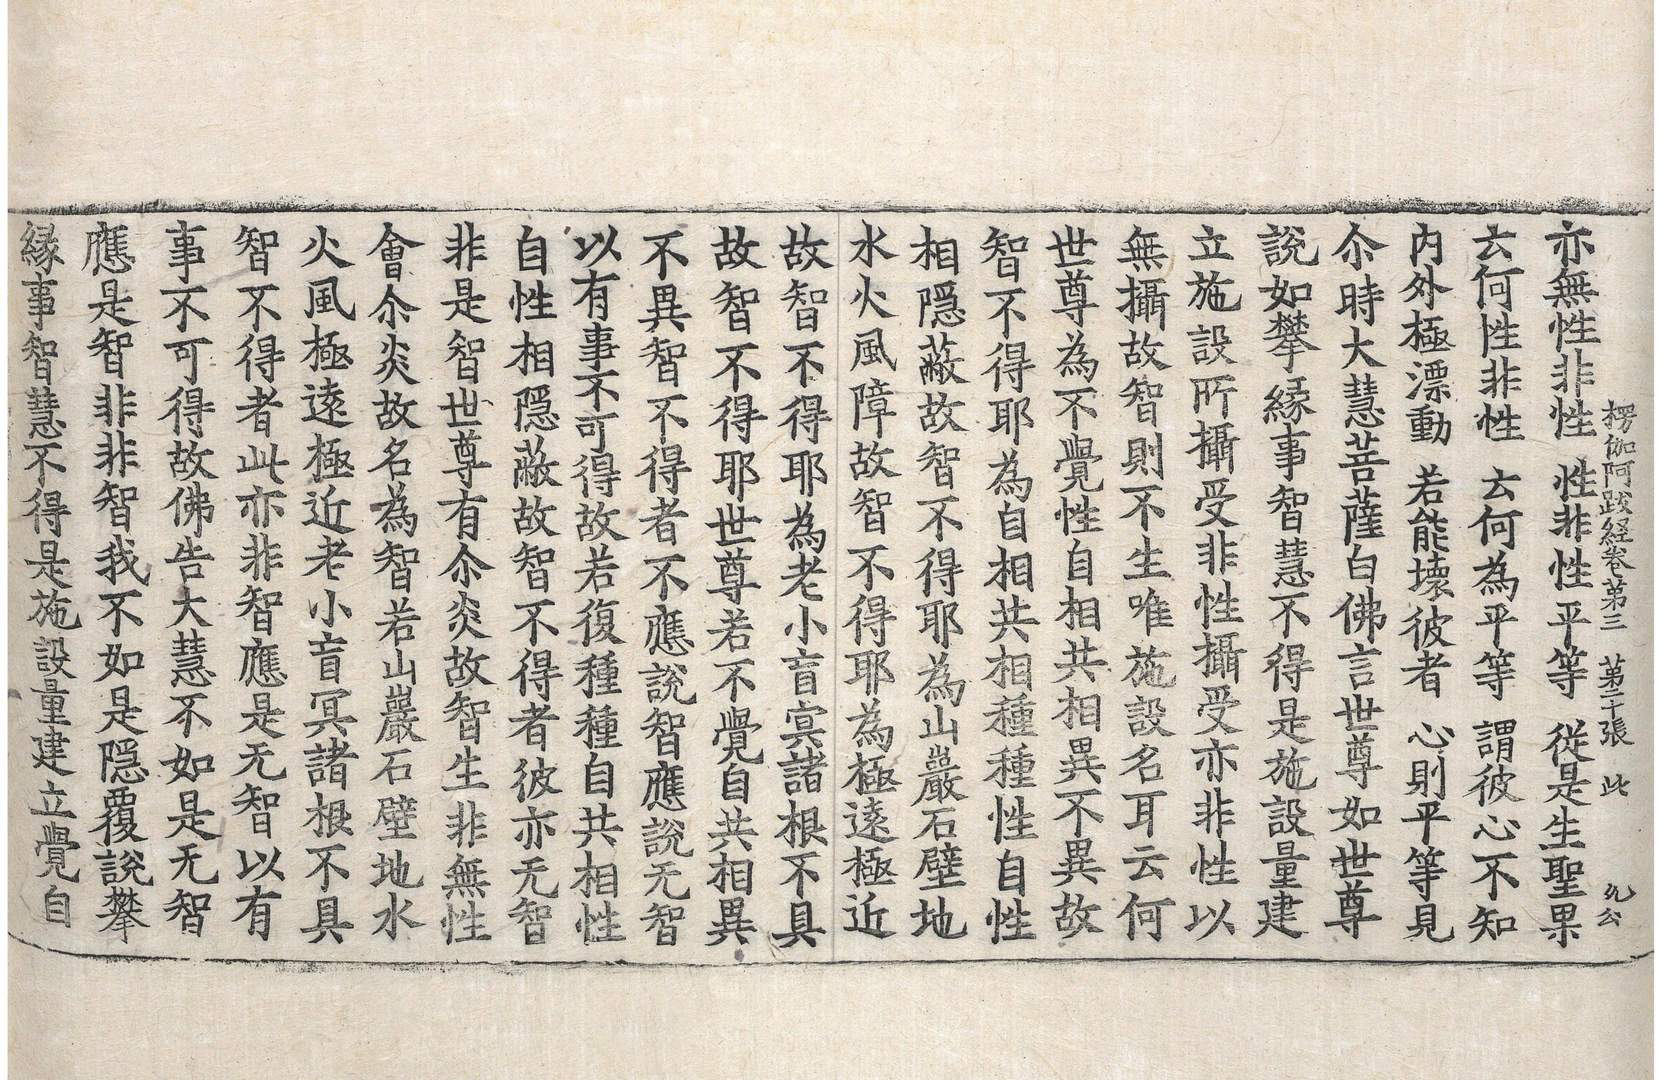 楞伽阿跋經卷第三　第二十張　此
亦無性非性　性非性平等　從是生聖果
云何性非性　云何為平等　謂彼心不知
内外極漂動　若能壞彼者　心則平等見
尒時大慧菩薩白佛言世尊如世尊
說如攀緣事智慧不得是施設量建
立施設所攝受非性攝受亦非性以
無攝故智則不生唯施設名耳云何
世尊為不覺性自相共相異不異故
智不得耶為自相共相種種性自性
相隱蔽故智不得耶為山巖石壁地
水火風障故智不得耶為極遠極近
故智不得耶為老小盲冥諸根不具
故智不得耶世尊若不覺自共相異
不異智不得者不應說智應說无智
以有事不可得故若復種種自共相性
自性相隱蔽故智不得者彼亦无智
非是智世尊有尒炎故智生非無性
會尒炎故名為智若山巖石壁地水
火風極遠極近老小盲冥諸根不具
智不得者此亦非智應是无智以有
事不可得故佛告大慧不如是无智
應是智非非智我不如是隱覆說攀
緣事智慧不得是施設量建立覺自